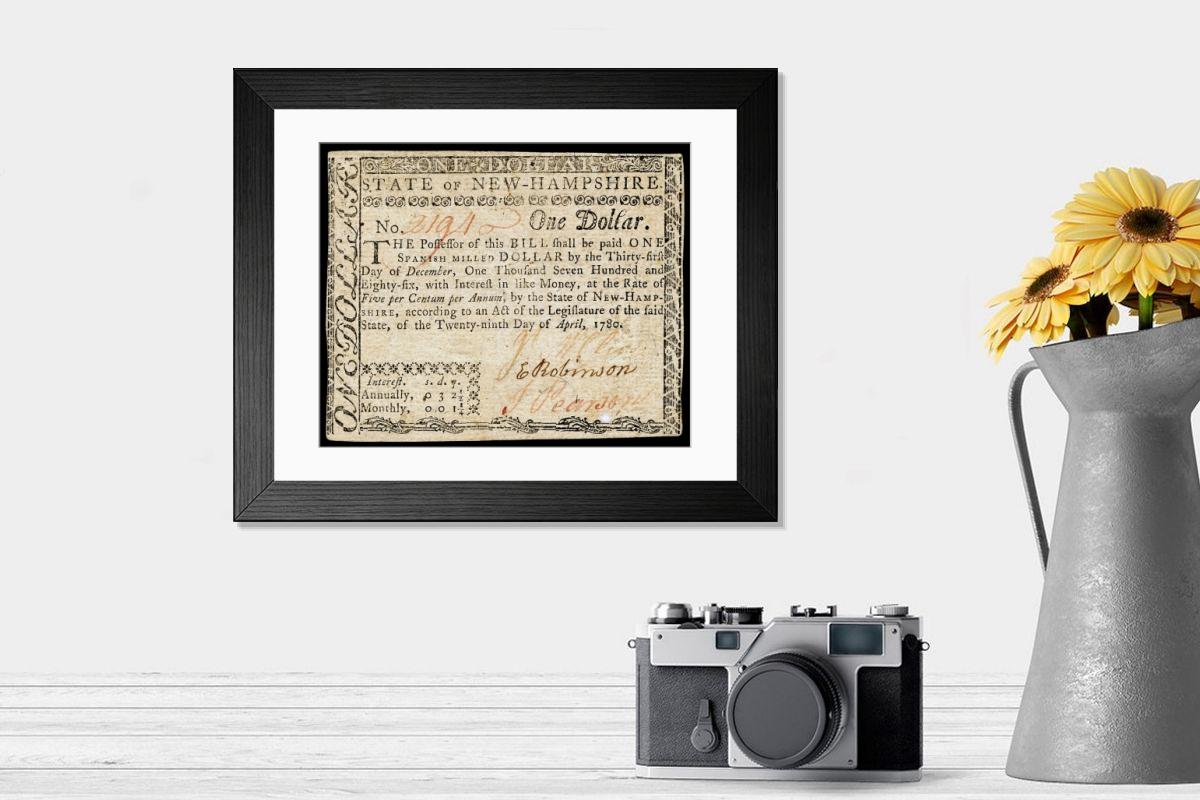 ONE DOLLAR
ONE DOLLAR
STATE OF NEW-HAMPSHIRE.
No. 3194 One Dollar.
THE Poſſeſſor of this BILL ſhall be paid ONE
SPANISH MILLED DOLLAR by the Thirty-firſt
Day of December, One Thouſand Seven Hundred and
Eighty-ſix, with Intereſt in like Money, at the Rate of
Five per Centum per Annum, by the State of NEW-HAMP-
SHIRE, according to an Act of the Legiſlature of the ſaid
State, of the Twenty-ninth Day of April, 1780.
E Robinson
J Pearson
Intereſt. s. d. q.
Annually, 0 3 2½
Monthly, 0 0 1¼